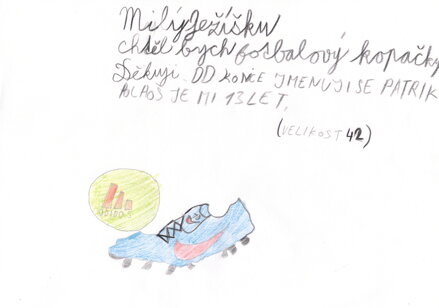 Milý Ježíšku
chtěl bych fotbalový kopačky
Děkuji. JMENUJI SE PATRIK
JE MI 13 LET.
(VELIKOST 42)
adidas